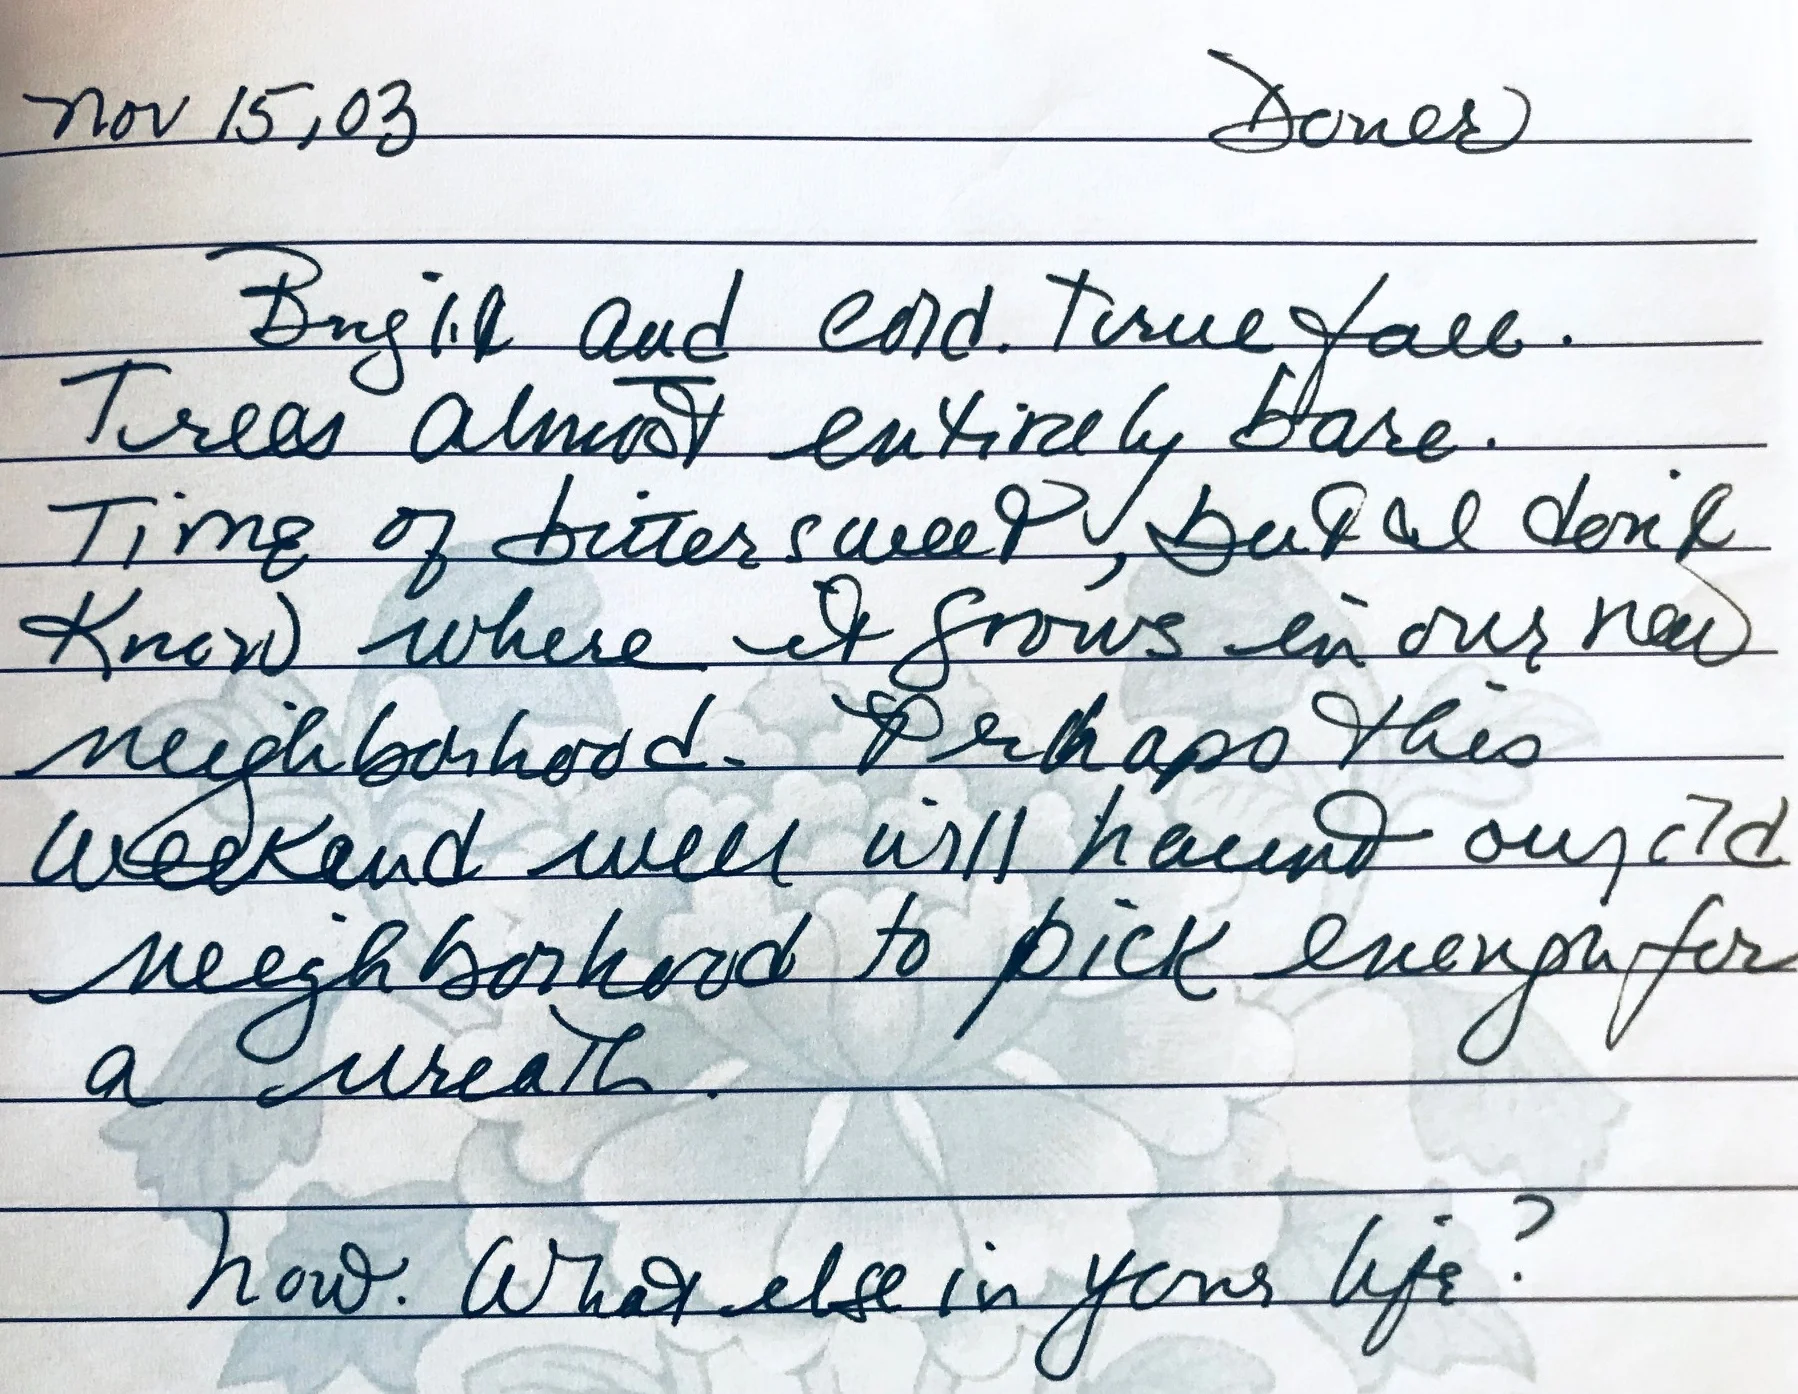 Nov 15, 03 Dover
Bright and cold. True fall.
Trees almost entirely bare.
Time of bittersweet, but I don't
know where it grows in our new
neighborhood. Perhaps this
weekend well will haunt our old
neighborhood to pick enough for
a wreath.
Now. What else in your life?